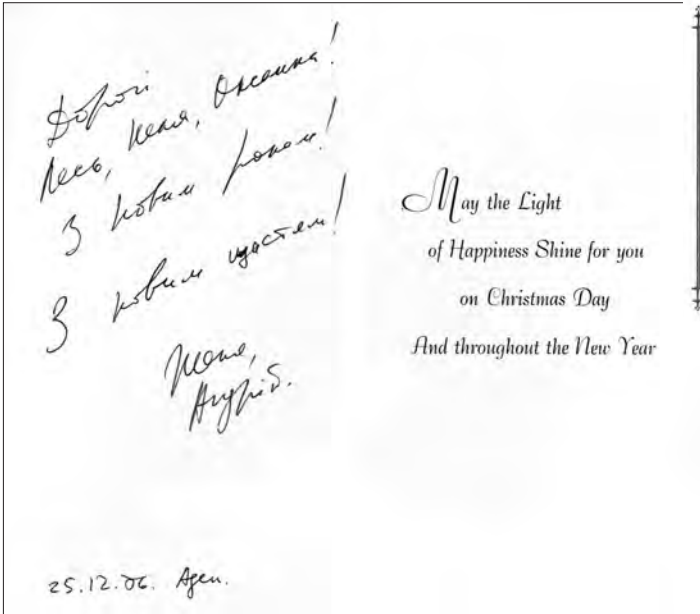 Дорогі
Лесь, Неля, Оксанка!
З новим роком!
З новим щастям!
Андрій.
25.12.06.
May the Light
of Happiness Shine for you
on Christmas Day
And throughout the New Year